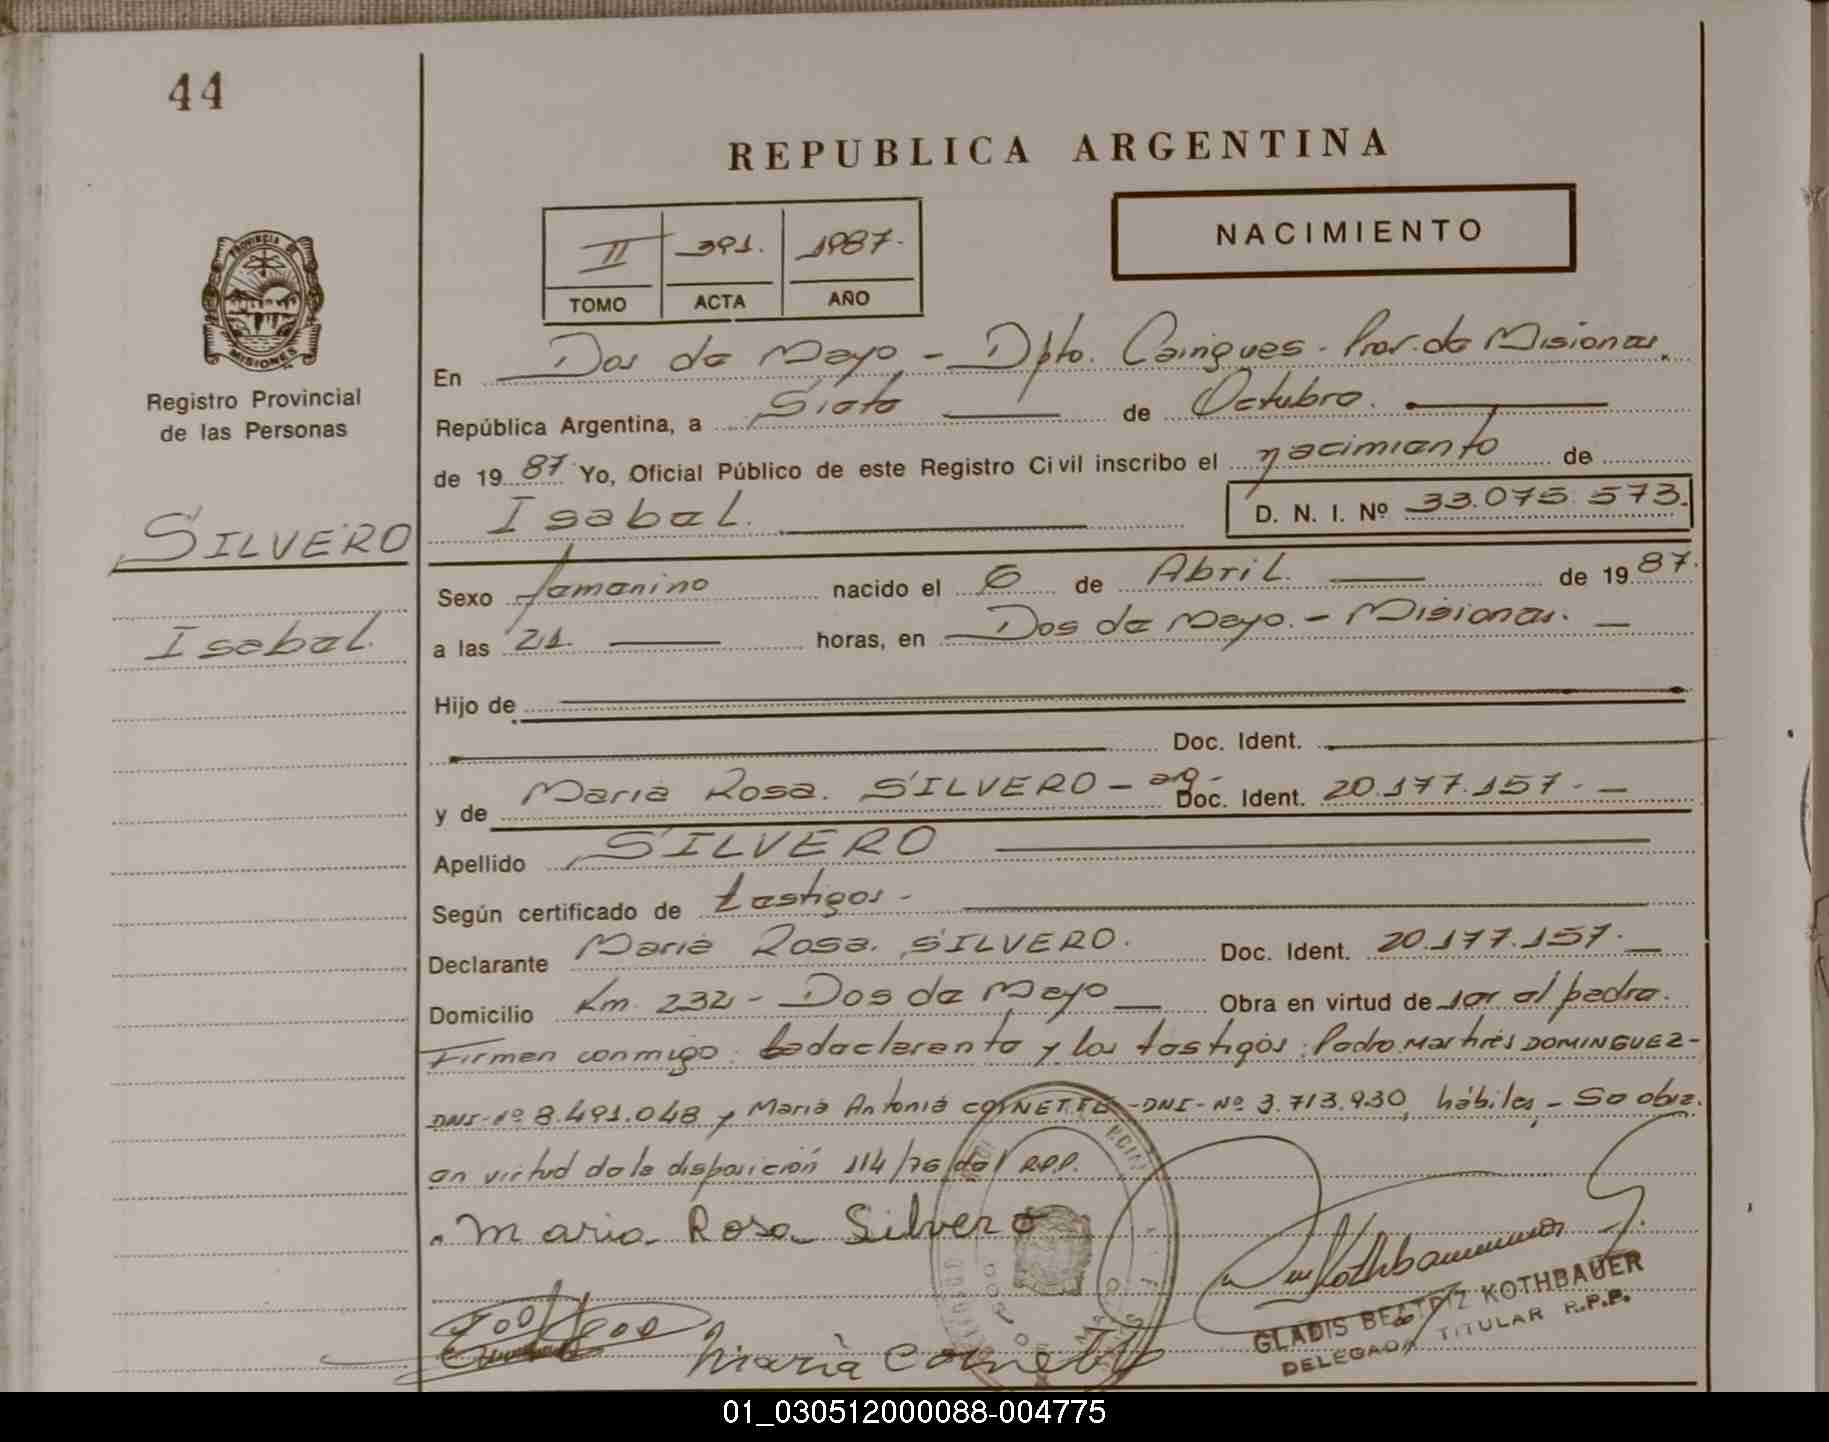 44
REPUBLICA ARGENTINA
NACIMIENTO
II 391. 1987.
TOMO ACTA AÑO
PROVINCIA DE
MISIONES
Registro Provincial
de las Personas
En Dos de Mayo - Dpto. Cainguas - Prov. de Misiones.
República Argentina, a Siete de Octubre.
de 19 87 Yo, Oficial Público de este Registro Civil inscribo el nacimiento de
Isabel. D. N. I. Nº 33.075.573.
SILVERO
Isabel.
Sexo femenino nacido el 6 de Abril. de 19 87.
a las 21. horas, en Dos de Mayo. - Misiones. -
Hijo de
Doc. Ident.
y de Maria Rosa. SILVERO - arg - Doc. Ident. 20.177.157. -
Apellido SILVERO
Según certificado de testigos -
Declarante Maria Rosa. SILVERO. Doc. Ident. 20.177.157. -
Domicilio Km. 232 - Dos de Mayo Obra en virtud de ser el padre.
Firman conmigo: la declarante y los testigos: Pedro Martires DOMINGUEZ -
DNI - Nº 8.491.048 y Maria Antonia CORNETTE - DNI - Nº 3.713.930, hábiles, - So obra.
en virtud de la disposición 114/76 del R.P.P.
Maria Rosa Silvero
Maria Cornett
GLADIS BEATRIZ KOTHBAUER
DELEGADA TITULAR R.P.P.
01_030512000088-004775